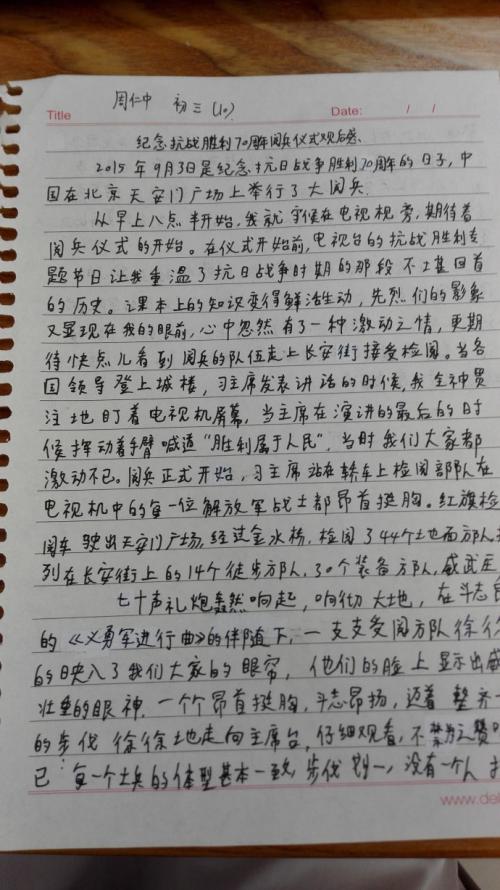 周仁中 初三(10)
Title
Date: / /
纪念抗战胜利70周年阅兵仪式观后感
2015年9月3日是纪念抗日战争胜利70周年的日子,中
国在北京天安门广场上举行了大阅兵.
从早上八点半开始,我就守候在电视机旁,期待着
阅兵仪式的开始。在仪式开始前,电视台的抗战胜利专
题节目让我重温了抗日战争时期的那段不堪回首
的历史。让课本上的知识变得鲜活生动,先烈们的影象
又显现在我的眼前,心中忽然有了一种激动之情,更期
待快点儿看到阅兵的队伍走上长安街接受检阅。当各
国领导登上城楼,习主席发表讲话的时候,我全神贯
注地盯着电视机屏幕,当主席在演讲的最后的时
候挥动着手臂喊道"胜利属于人民",当时我们大家都
激动不已。阅兵正式开始,习主席站在轿车上检阅部队在
电视机中的每一位解放军战士都昂首挺胸。红旗检
阅车驶出天安门广场,经过金水桥,检阅了44个地面方队
列在长安街上的14个徒步方队,30个装备方队,威武庄
七十声礼炮轰然响起,响彻大地,在斗志
的《义勇军进行曲》的伴随下,一支支受阅方队徐徐
的映入了我们大家的眼帘,他们的脸上显示出威
壮重的眼神.一个个昂首挺胸,斗志昂扬,迈着整齐
的步伐徐徐地走向主席台,仔细观看,不禁为之赞
已:每一个士兵的体型基本一致,步伐划一,没有一个人
www.del